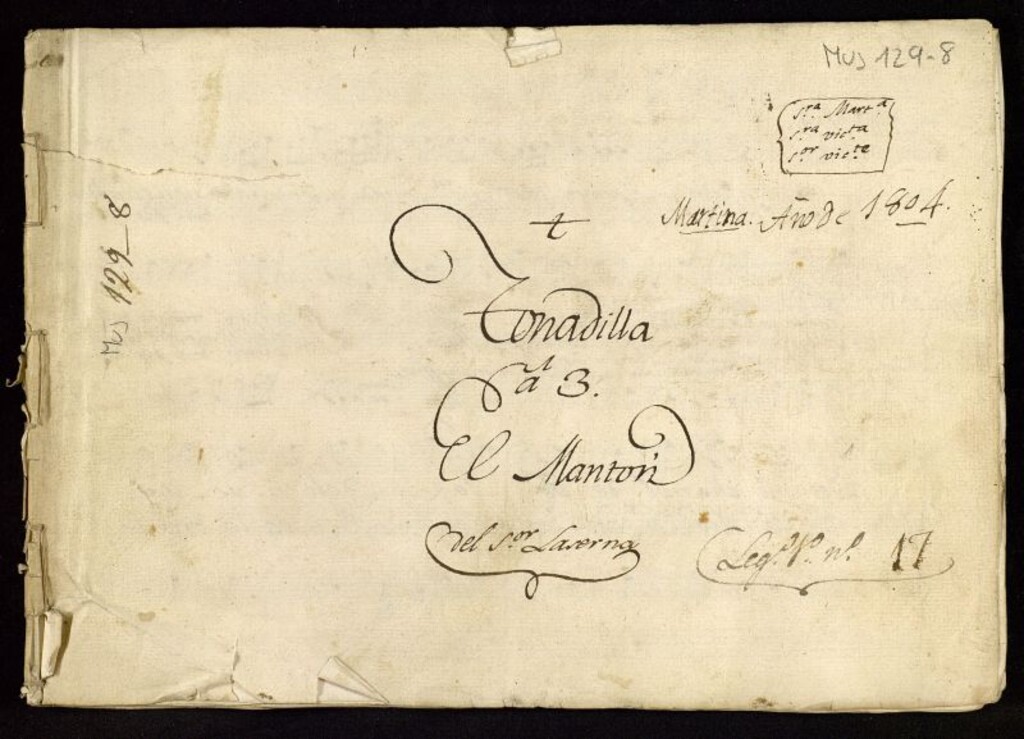 MUS 129-8
S.ra Mart.a
S.ra Vict.a
S.or Vic.te
Martina. Año de 1804.
Tonadilla
a 3.
El Mantón
del S.or Laserna
Leg.o 1.o n.o 17
MUS 129-8